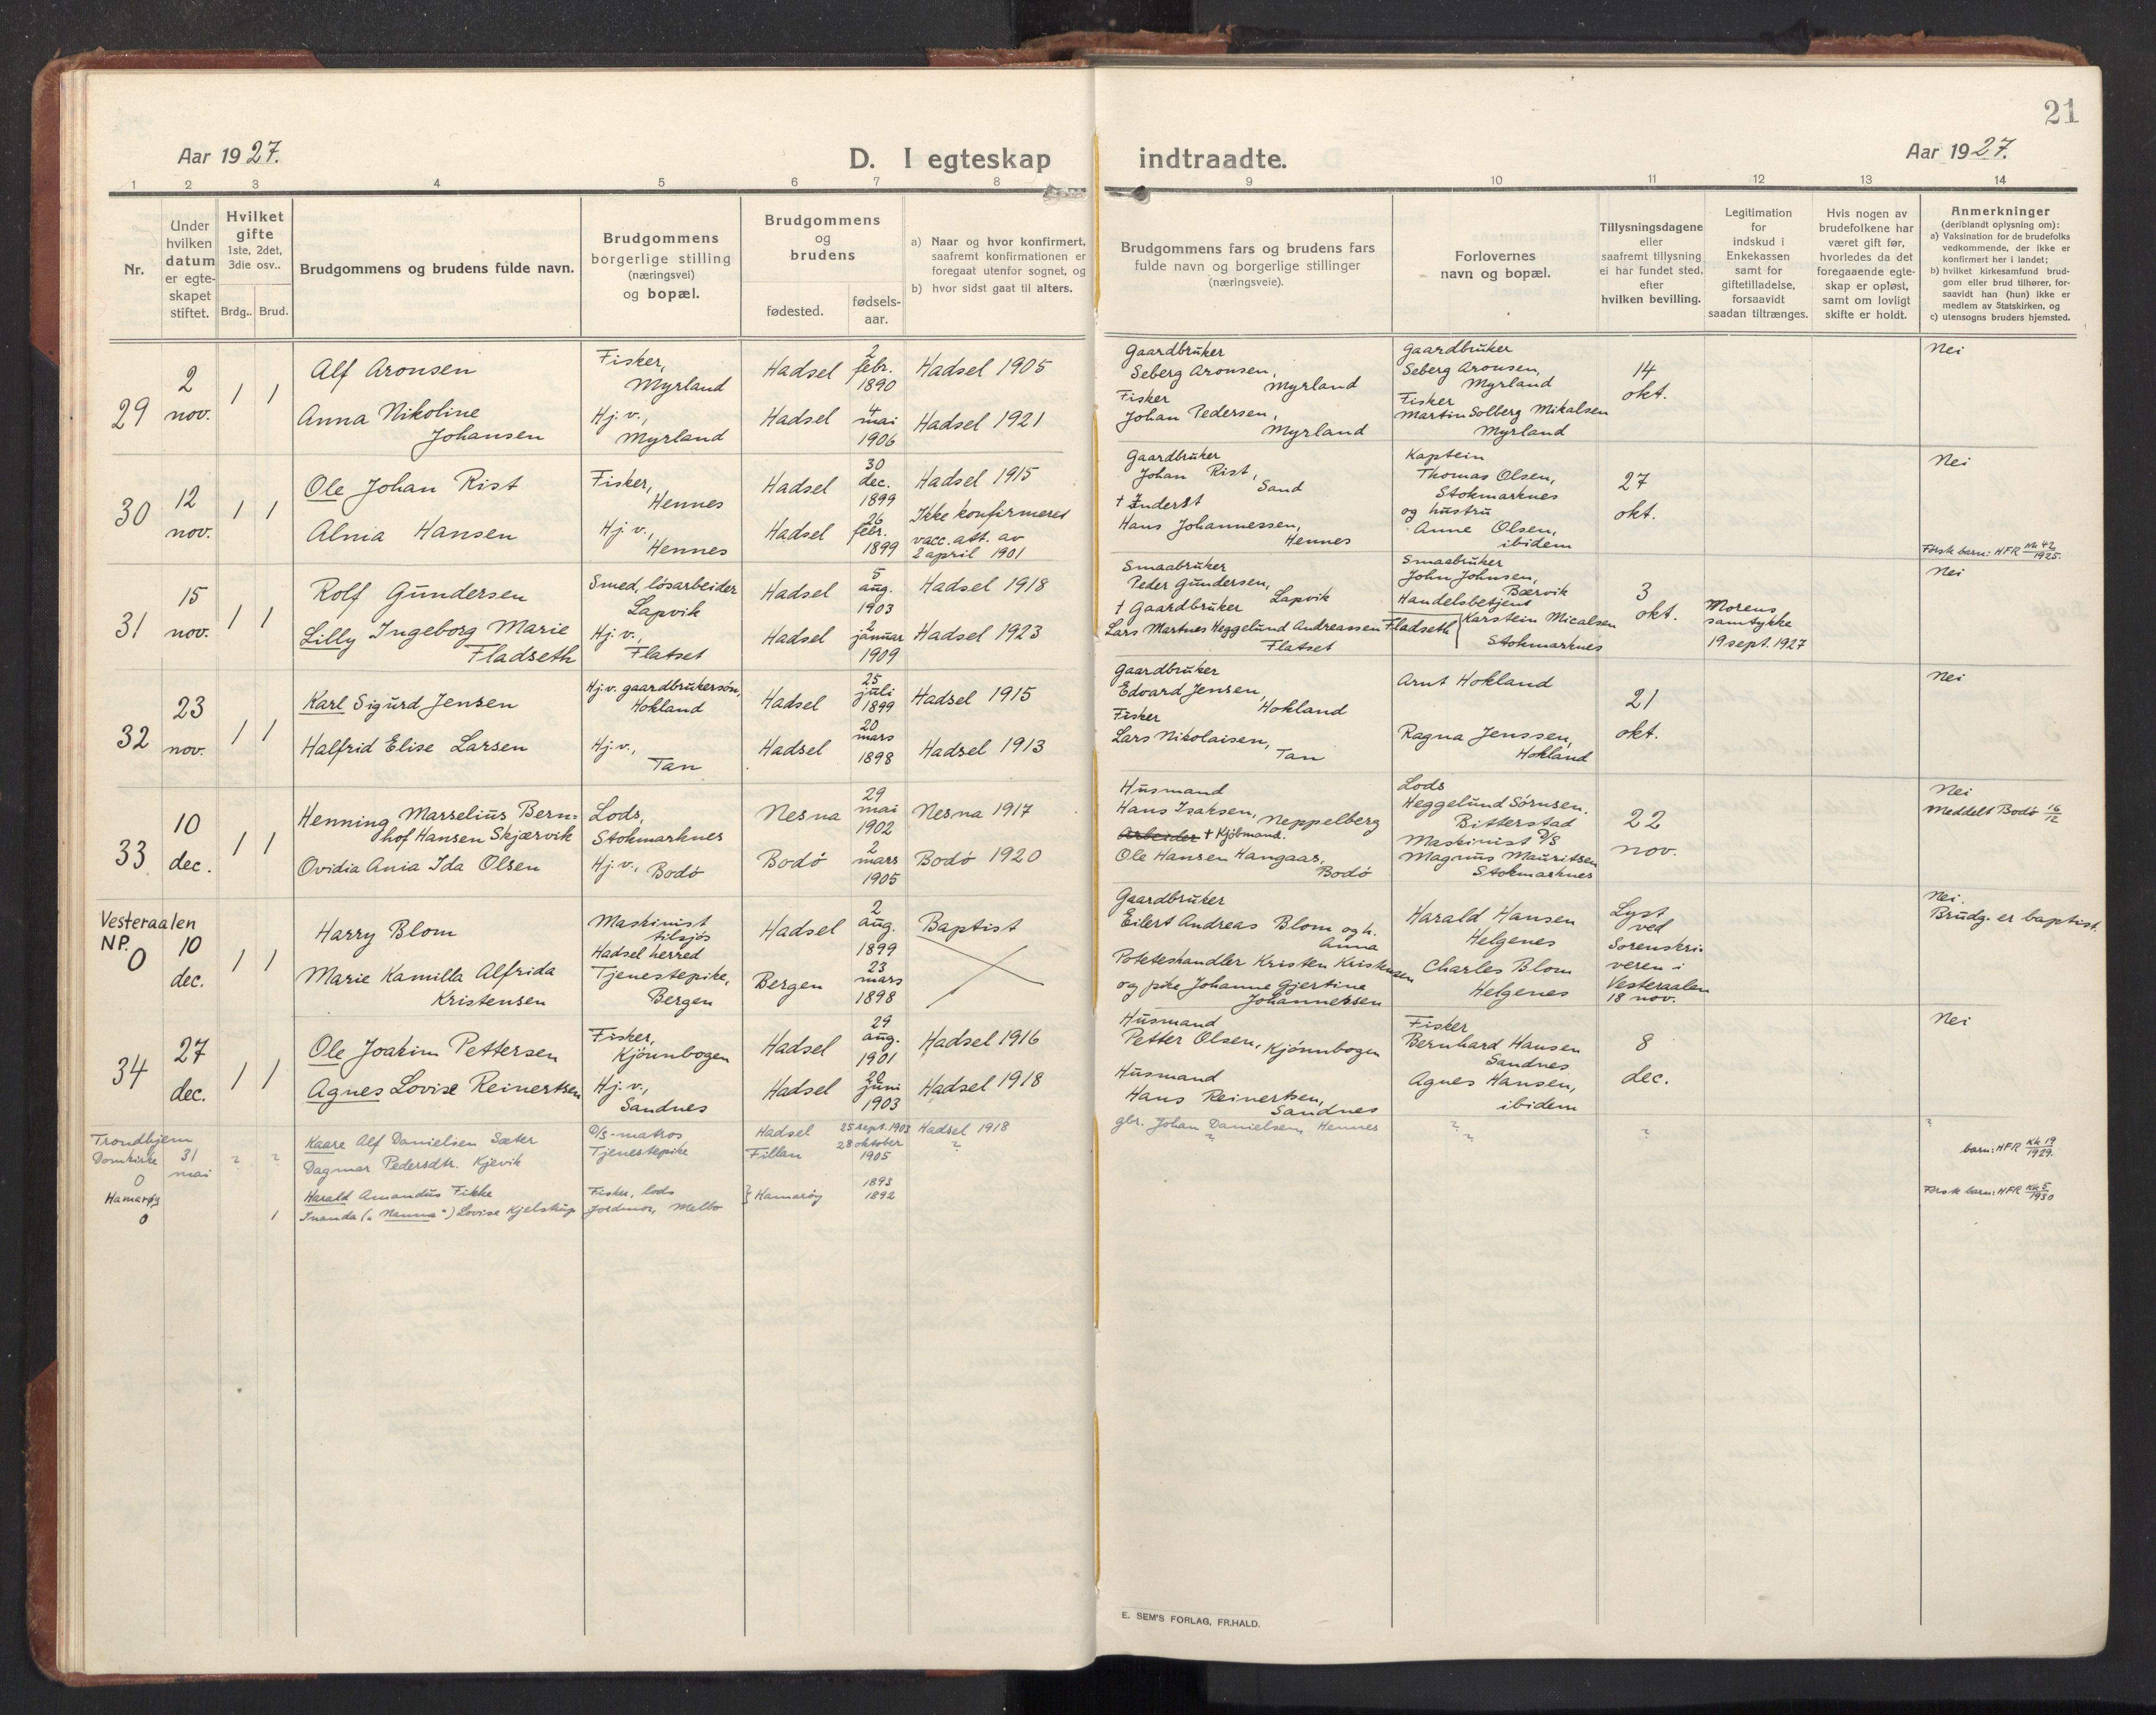 21
Aar 1927.
D. I egteskap
indtraadte.
Aar 1927.
1 2 3 4 5 6 7 8 9 10 11 12 13 14
Nr.
Under
hvilken
datum
er egte-
skapet
stiftet.
Hvilket
gifte
1ste, 2det,
3die osv..
Brdg.. Brud.
Brudgommens og brudens fulde navn.
Brudgommens
borgerlige stilling
(næringsvei)
og bopæl.
Brudgommens
og
brudens
fødested.
fødsels-
aar.
a) Naar og hvor konfirmert,
saafremt konfirmationen er
foregaat utenfor sognet, og
b) hvor sidst gaat til alters.
Brudgommens fars og brudens fars
fulde navn og borgerlige stillinger
(næringsveie).
Forlovernes
navn og bopæl.
Tillysningsdagene
eller
saafremt tillysning
ei har fundet sted,
efter
hvilken bevilling.
Legitimation
for
indskud i
Enkekassen
samt for
giftetilladelse,
forsaavidt
saadan tiltrænges.
Hvis nogen av
brudefolkene har
været gift før,
hvorledes da det
foregaaende egte-
skap er opløst,
samt om lovligt
skifte er holdt.
Anmerkninger
(deriblandt oplysning om):
a) Vaksination for de brudefolks
vedkommende, der ikke er
konfirmert her i landet;
b) hvilket kirkesamfund brud-
gom eller brud tilhører, for-
saavidt han (hun) ikke er
medlem av Statskirken, og
c) utensogns bruders hjemsted.
29
2
nov.
1 1
Alf Aronsen
Anna Nikoline
Johansen
Fisker,
Myrland
Hj. v.,
Myrland
Hadsel
Hadsel
2
febr.
1890
4
mai
1906
Hadsel 1905
Hadsel 1921
Gaardbruker
Seberg Aronsen,
Myrland
Fisker
Johan Pedersen,
Myrland
Gaardbruker
Seberg Aronsen,
Myrland
Fisker
Martin Solberg Mikalsen
Myrland
14
okt.
Nei
30
12
nov.
1 1
Ole Johan Rist
Alnia Hansen
Fisker,
Hennes
Hj. v.,
Hennes
Hadsel
Hadsel
30
dec.
1899
26
febr.
1899
Hadsel 1915
Ikke konfirmeret
vacc. att. av
2 april 1901
Gaardbruker
Johan Rist,
Sand
† Inderst
Hans Johannessen,
Hennes
Kaptein
Thomas Olsen,
Stokmarknes
og hustru
Anne Olsen,
ibidem
27
okt.
Nei
Første barn: HFR Mk 42
1925.
31
15
nov.
1 1
Rolf Gundersen
Lilly Ingeborg Marie
Fladseth
Smed, løsarbeider
Lapvik
Hj. v.,
Flatset
Hadsel
Hadsel
5
aug.
1903
2
januar
1909
Hadsel 1918
Hadsel 1923
Smaabruker
Peder Gundersen,
Lapvik
† Gaardbruker
Lars Martnes Heggelund Andreassen Fladseth
Flatset
Smaabruker
John Johnsen,
Bærvik
Handelsbetjent
Karstein Micalsen
Stokmarknes
3
okt.
Morens
samtykke
19 sept. 1927
Nei
32
23
nov.
1 1
Karl Sigurd Jensen
Halfrid Elise Larsen
Hj. v. gaardbrukersøn,
Hokland
Hj. v.,
Tan
Hadsel
Hadsel
25
juli
1899
20
mars
1898
Hadsel 1915
Hadsel 1913
Gaardbruker
Edvard Jensen,
Hokland
Fisker
Lars Nikolaisen,
Tan
Arnt Hokland
Ragna Jenssen,
Hokland
21
okt.
Nei
33
10
dec.
1 1
Henning Marselius Bern=
hof Hansen Skjærvik
Ovidia Ania Ida Olsen
Lods,
Stokmarknes
Hj. v., Bodø
Nesna
Bodø
29
mai
1902
2
mars
1905
Nesna 1917
Bodø 1920
Husmand
Hans Isaksen, Neppelberg
Arbeider † Kjøbmand.
Ole Hansen Hangaas,
Bodø
Lods
Heggelund Sørnsen.
Bitterstad
Maskinist D/S
Magnus Mauritsen
Stokmarknes
22
nov.
Nei
Meddelt Bodø 16/12
Vesteraalen
NP.
0
10
dec.
1 1
Harry Blom
Marie Kamilla Alfrida
Kristensen
Maskinist
tilsjøs
Hadsel herred
Tjenestepike,
Bergen
Hadsel
Bergen
2
aug.
1899
23
mars
1898
Baptist
Gaardbruker
Eilert Andreas Blom og h.
Anna
Poteteshandler Kristen Kristensen
og pike Johanne Gjertine
Johannessen
Harald Hansen
Helgenes
Charles Blom
Helgenes
Lyst
ved
Sorenskri-
veren i
Vesteraalen
18 nov.
Nei.
Brudg. er baptist.
34
27
dec.
1 1
Ole Joakim Pettersen
Agnes Lovise Reinertsen
Fisker,
Kjønnbogen
Hj. v.,
Sandnes
Hadsel
Hadsel
29
aug.
1901
20
juni
1903
Hadsel 1916
Hadsel 1918
Husmand
Petter Olsen, Kjønnbogen
Husmand
Hans Reinertsen,
Sandnes
Fisker
Bernhard Hansen
Sandnes
Agnes Hansen,
ibidem
8
dec.
Nei
Trondhjem
Domkirke
0
31
mai
? ?
Kaare Alf Danielsen Sæter
Dagmar Pedersdtr. Kjevik
D/S-matros
Tjenestepike
Hadsel
Fillan
25 sept. 1903
28 oktober
1905
Hadsel 1918
?
gbr. Johan Danielsen, Hennes
?
?
?
?
?
barn: HFR Kk 19
1929.
Hamarøy
0
1
Harald Amandus Fikke
Inanda („Nanna“) Lovise Kjelstrup
Fisker, lods
Jordmor, Melbo
Hamarøy
1893
1892
Første barn: HFR Kk 5
1930
E. SEM'S FORLAG, FR.HALD.